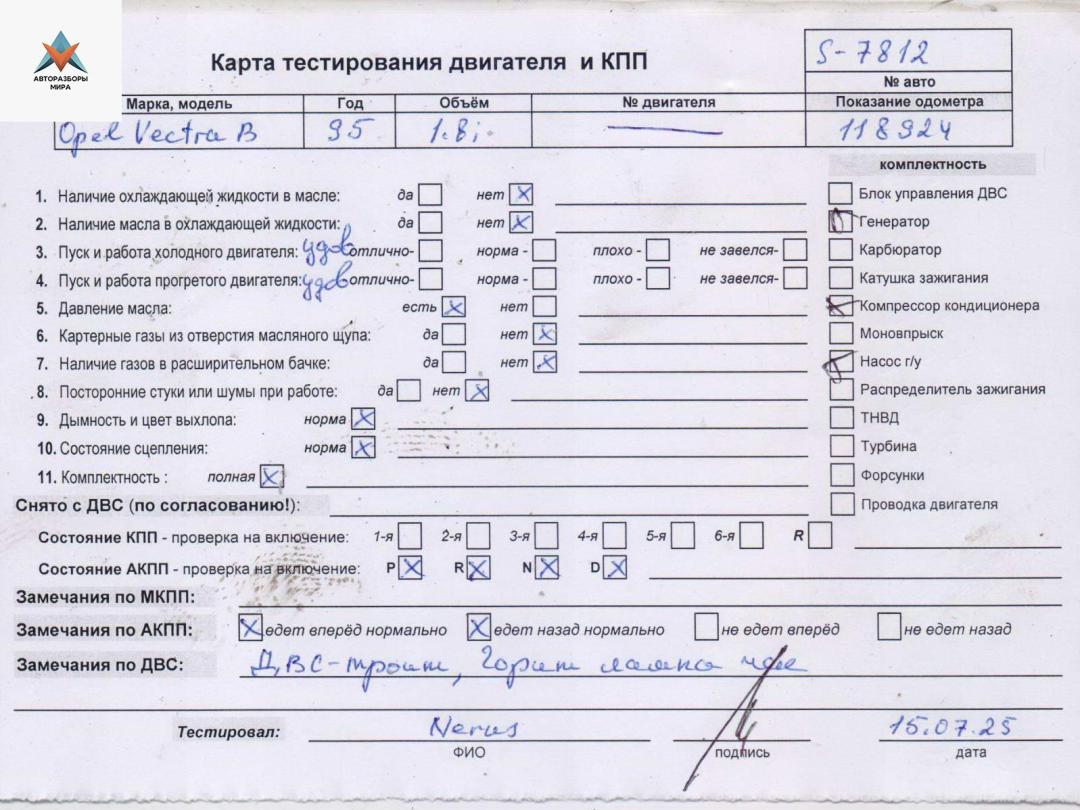 АВТОРАЗБОРЫ
МИРА
Карта тестирования двигателя и КПП
S-7812
№ авто
Марка, модель Год Объём № двигателя Показание одометра
Opel Vectra B 95 1.8i 118924
комплектность
1. Наличие охлаждающей жидкости в масле: да нет Блок управления ДВС
2. Наличие масла в охлаждающей жидкости: да нет Генератор
3. Пуск и работа холодного двигателя: удов отлично- норма - плохо - не завелся- Карбюратор
4. Пуск и работа прогретого двигателя: удов отлично- норма - плохо - не завелся- Катушка зажигания
5. Давление масла: есть нет Компрессор кондиционера
6. Картерные газы из отверстия масляного щупа: да нет Моновпрыск
7. Наличие газов в расширительном бачке: да нет Насос г/у
8. Посторонние стуки или шумы при работе: да нет Распределитель зажигания
9. Дымность и цвет выхлопа: норма ТНВД
10. Состояние сцепления: норма Турбина
11. Комплектность : полная Форсунки
Снято с ДВС (по согласованию!): Проводка двигателя
Состояние КПП - проверка на включение: 1-я 2-я 3-я 4-я 5-я 6-я R
Состояние АКПП - проверка на включение: P R N D
Замечания по МКПП:
Замечания по АКПП: едет вперёд нормально едет назад нормально не едет вперёд не едет назад
Замечания по ДВС: ДВС-троит, Горит лампа чек
Тестировал: Nerus 15.07.25
ФИО подпись дата